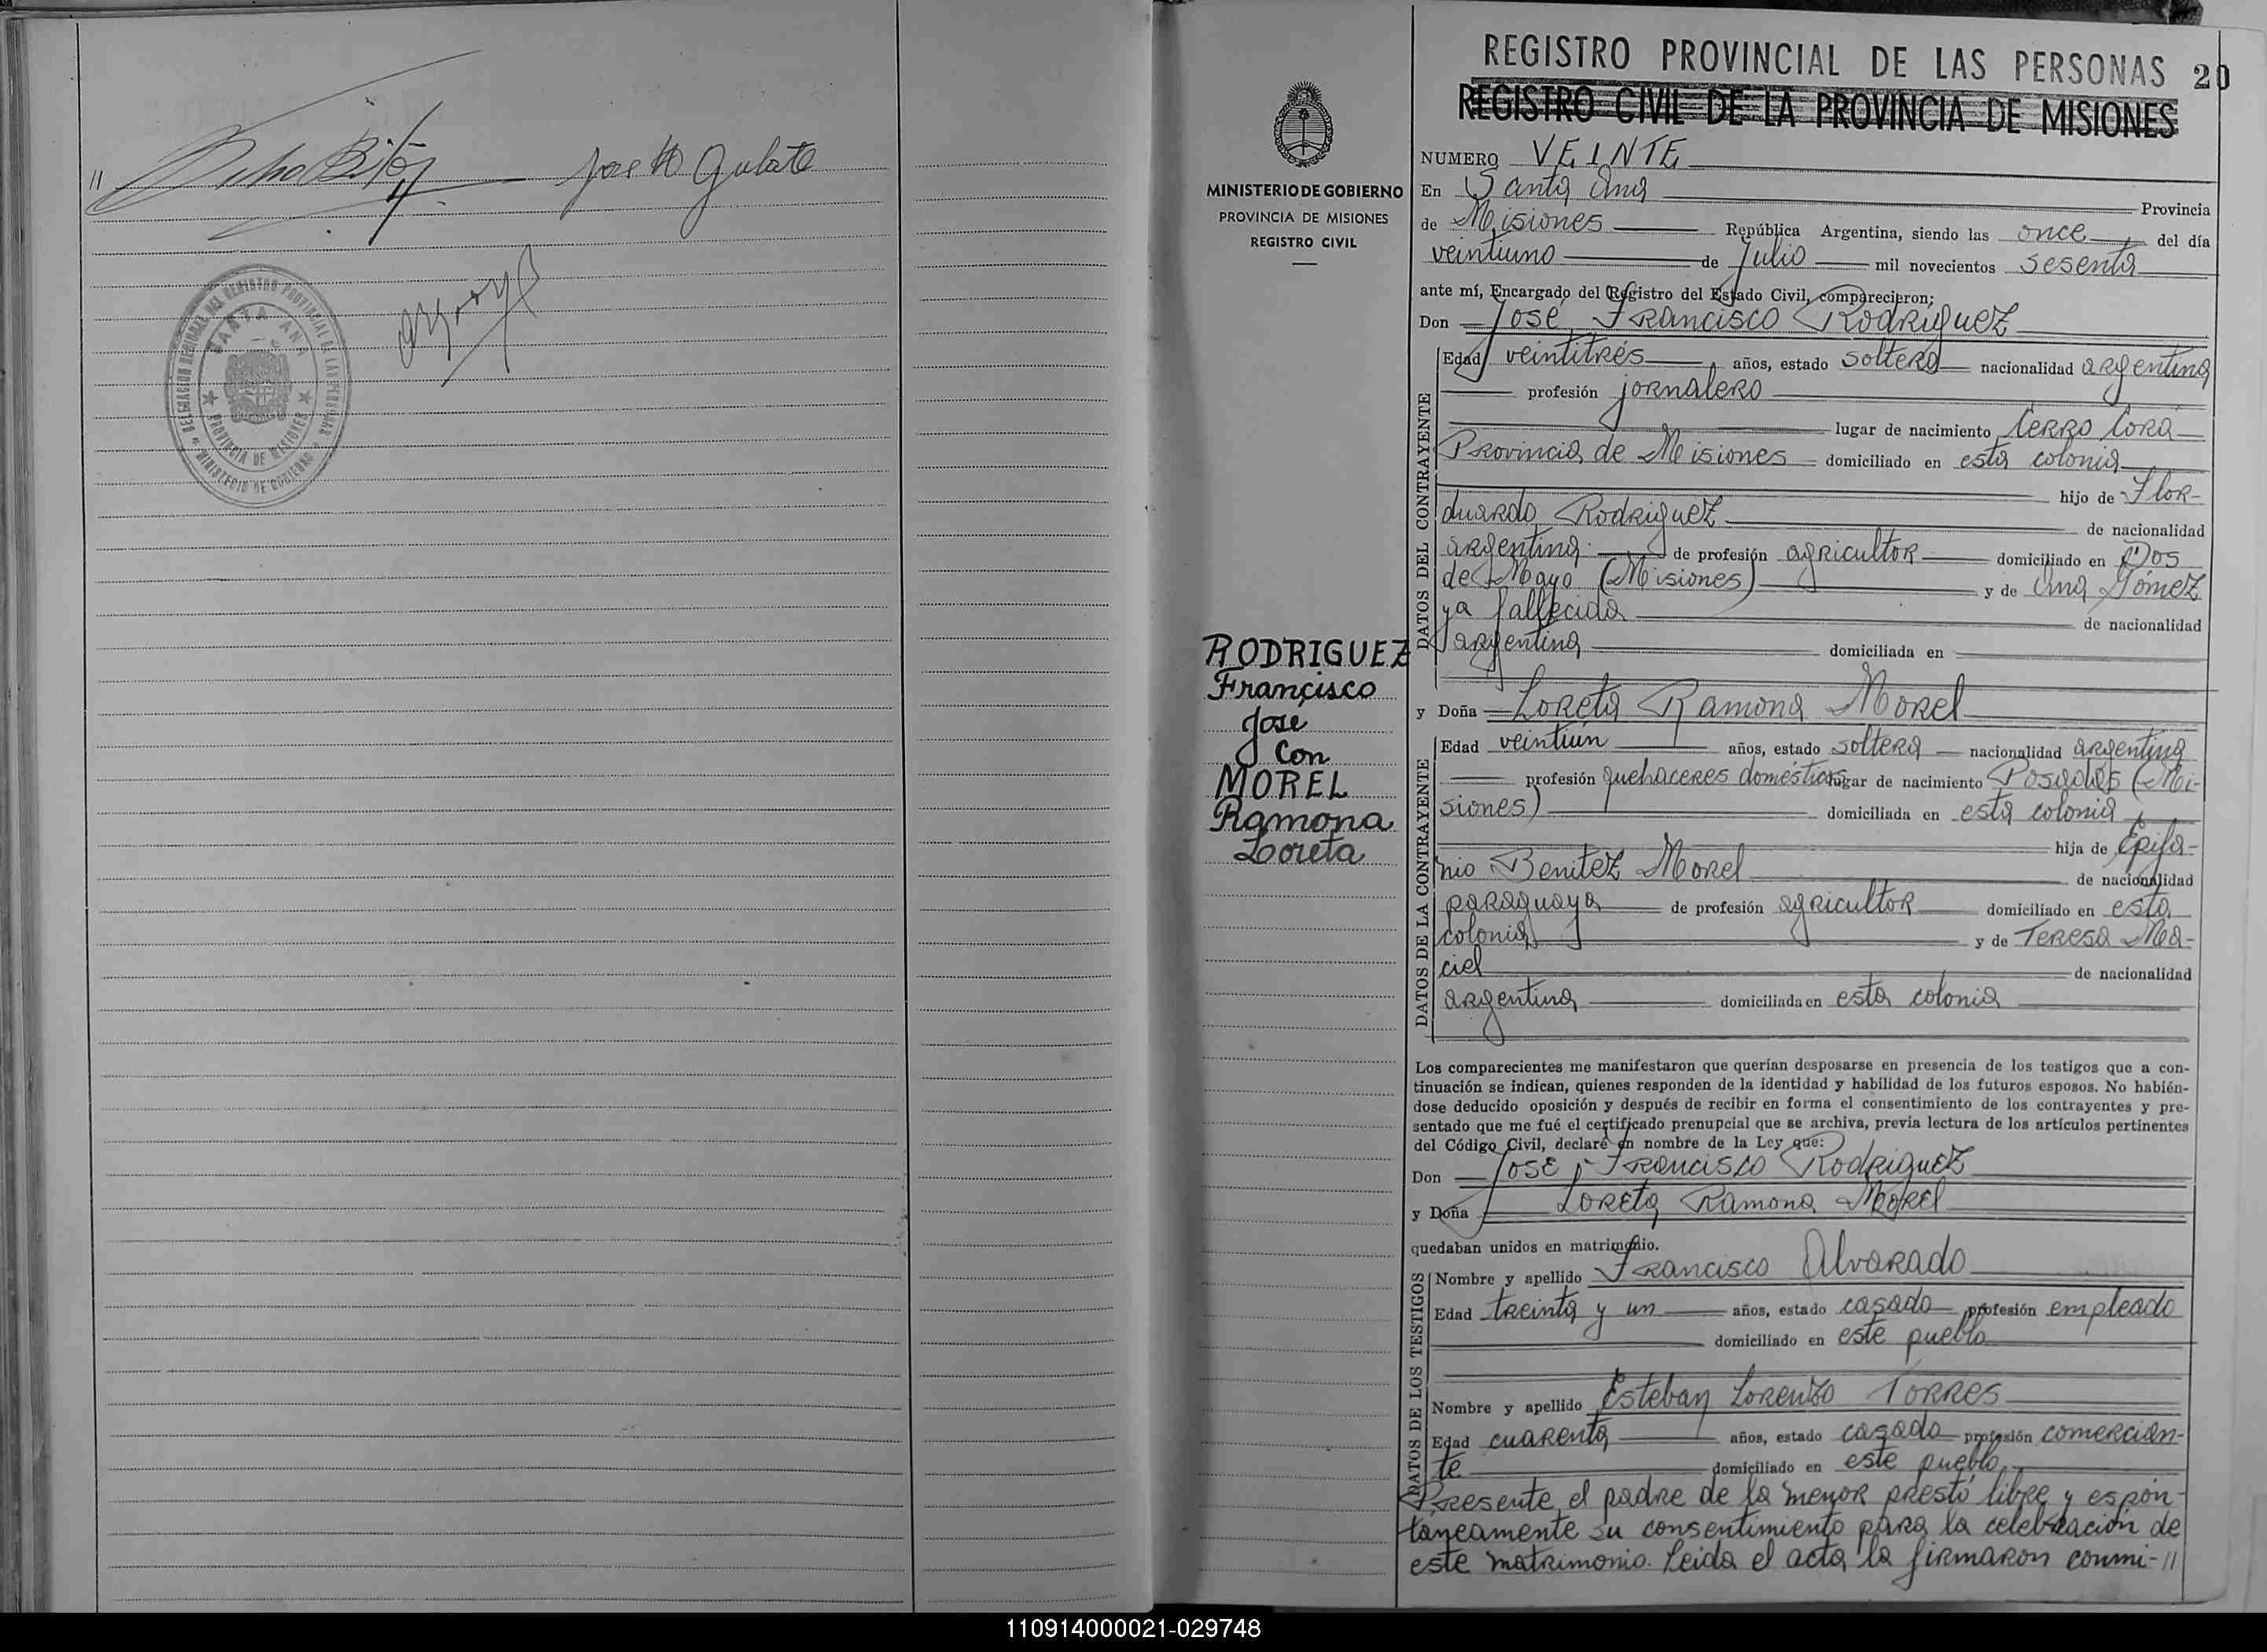 //
SANTA ANA
PROVINCIA DE MISIONES
MINISTERIO DE GOBIERNO
REGISTRO PROVINCIAL DE LAS PERSONAS
20
REGISTRO CIVIL DE LA PROVINCIA DE MISIONES
MINISTERIO DE GOBIERNO
PROVINCIA DE MISIONES
REGISTRO CIVIL
NUMERO VEINTE
En Santa Ana Provincia
de Misiones República Argentina, siendo las once del día
veintiuno de Julio mil novecientos sesenta
ante mí, Encargado del Registro del Estado Civil, comparecieron:
Don José Francisco Rodriguez
DATOS DEL CONTRAYENTE
Edad veintitrés años, estado soltero nacionalidad argentina
profesión jornalero
lugar de nacimiento Cerro Corá
Provincia de Misiones domiciliado en esta colonia
hijo de Flor-
duardo Rodriguez de nacionalidad
argentina de profesión agricultor domiciliado en Dos
de Mayo (Misiones) y de Ana Gómez
ya fallecida de nacionalidad
argentina domiciliada en
RODRIGUEZ
Francisco
José
Con
MOREL
Ramona
Loreta
y Doña Loreta Ramona Morel
DATOS DE LA CONTRAYENTE
Edad veintiún años, estado soltera nacionalidad argentina
profesión quehaceres domésticos lugar de nacimiento Posadas (Mi-
siones) domiciliada en esta colonia
hija de Epifa-
nio Benitez Morel de nacionalidad
paraguaya de profesión agricultor domiciliado en esta
colonia y de Teresa Ma-
ciel de nacionalidad
argentina domiciliada en esta colonia
Los comparecientes me manifestaron que querían desposarse en presencia de los testigos que a con-
tinuación se indican, quienes responden de la identidad y habilidad de los futuros esposos. No habién-
dose deducido oposición y después de recibir en forma el consentimiento de los contrayentes y pre-
sentado que me fué el certificado prenupcial que se archiva, previa lectura de los artículos pertinentes
del Código Civil, declaré en nombre de la Ley que:
Don José Francisco Rodriguez
y Doña Loreta Ramona Morel
quedaban unidos en matrimonio.
DATOS DE LOS TESTIGOS
Nombre y apellido Francisco Alvarado
Edad treinta y un años, estado casado profesión empleado
domiciliado en este pueblo
Nombre y apellido Esteban Lorenzo Torres
Edad cuarenta años, estado casado profesión comercian-
te domiciliado en este pueblo.
Presente el padre de la menor prestó libre y espon-
táneamente su consentimiento para la celebración de
este matrimonio. Leida el acta la firmaron conmi-//
110914000021-029748